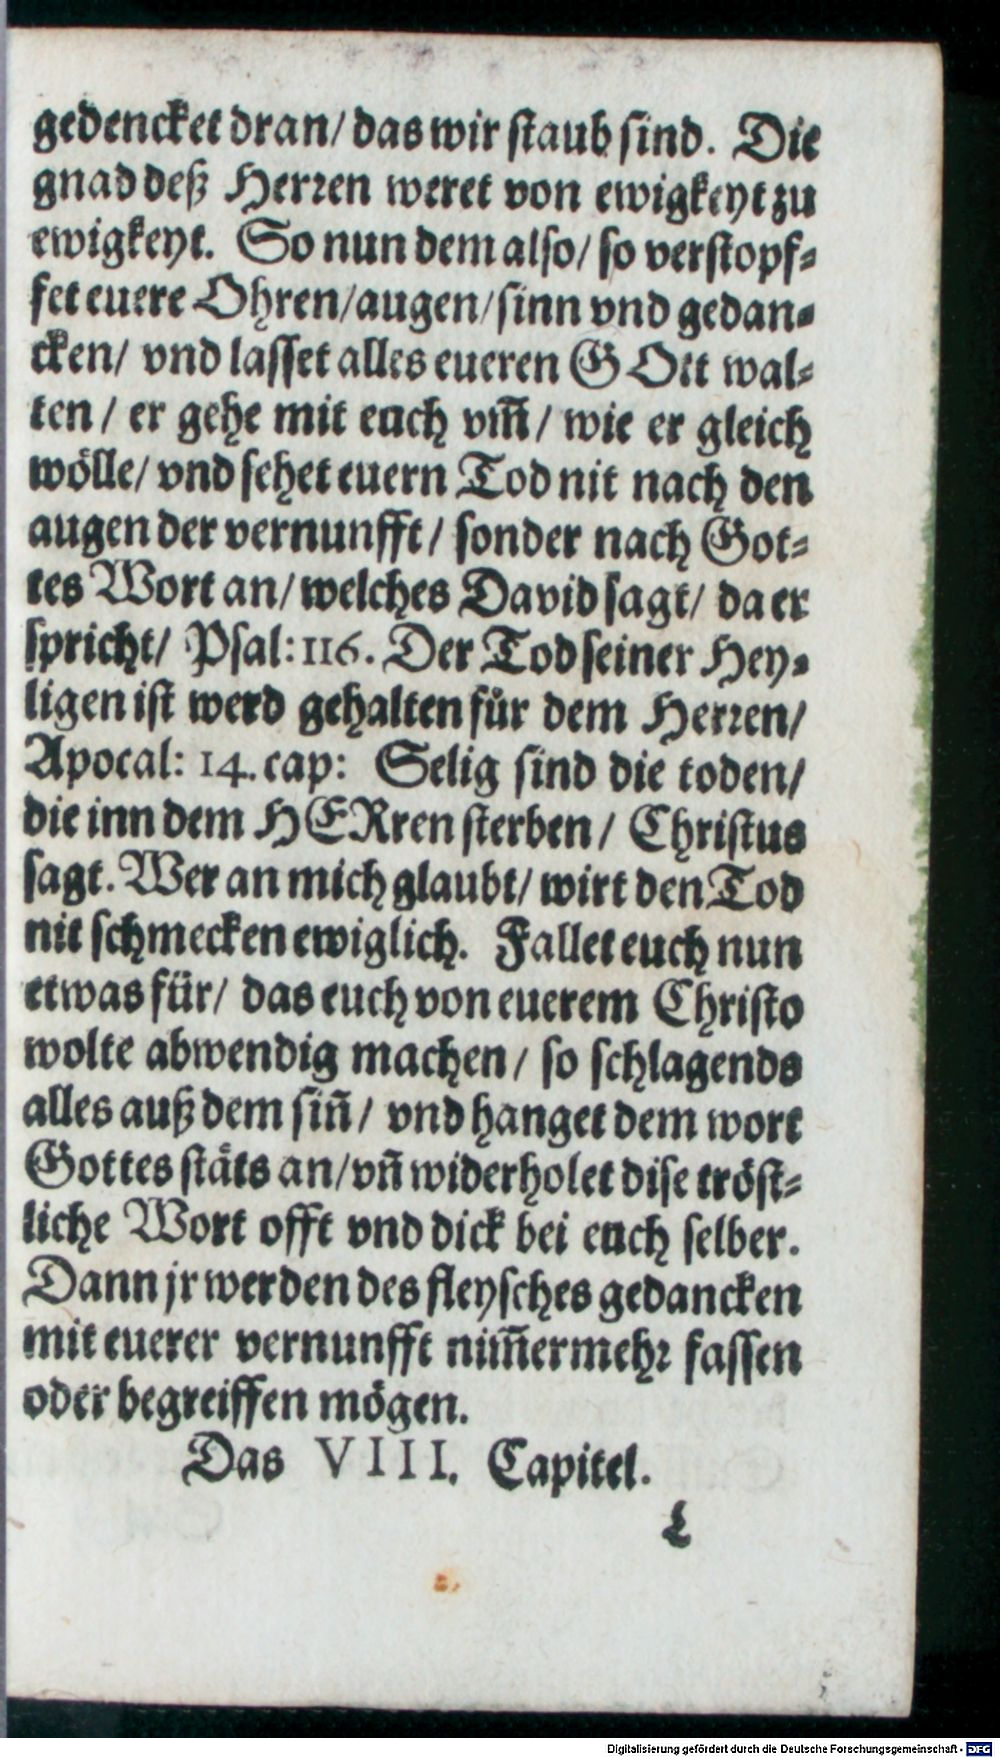 gedencket dran/ das wir staub sind. Die
gnad deß Herren weret von ewigkeyt zu
ewigkeyt. So nun dem also/ so verstopf⸗
fet euere Ohren/augen/sinn vnd gedan⸗
cken/ vnd lasset alles eueren GOtt wal⸗
ten/ er gehe mit euch vm̃/ wie er gleich
wölle/ vnd sehet euern Tod nit nach den
augen der vernunfft/ sonder nach Got⸗
tes Wort an/ welches David sagt/ da er
spricht/ Psal: 116. Der Tod seiner Hey⸗
ligen ist werd gehalten für dem Herren/
Apocal: 14. cap: Selig sind die toden/
die inn dem HERren sterben/ Christus
sagt. Wer an mich glaubt/ wirt den Tod
nit schmecken ewiglich. Fallet euch nun
etwas für/ das euch von euerem Christo
wolte abwendig machen/ so schlagends
alles auß dem siñ/ vnd hanget dem wort
Gottes stäts an/ vñ widerholet dise tröst⸗
liche Wort offt vnd dick bei euch selber.
Dann jr werden des fleysches gedancken
mit euerer vernunfft nim̃ermehr fassen
oder begreiffen mögen.
Das VIII. Capitel.
L
Digitalisierung gefördert durch die Deutsche Forschungsgemeinschaft - DFG